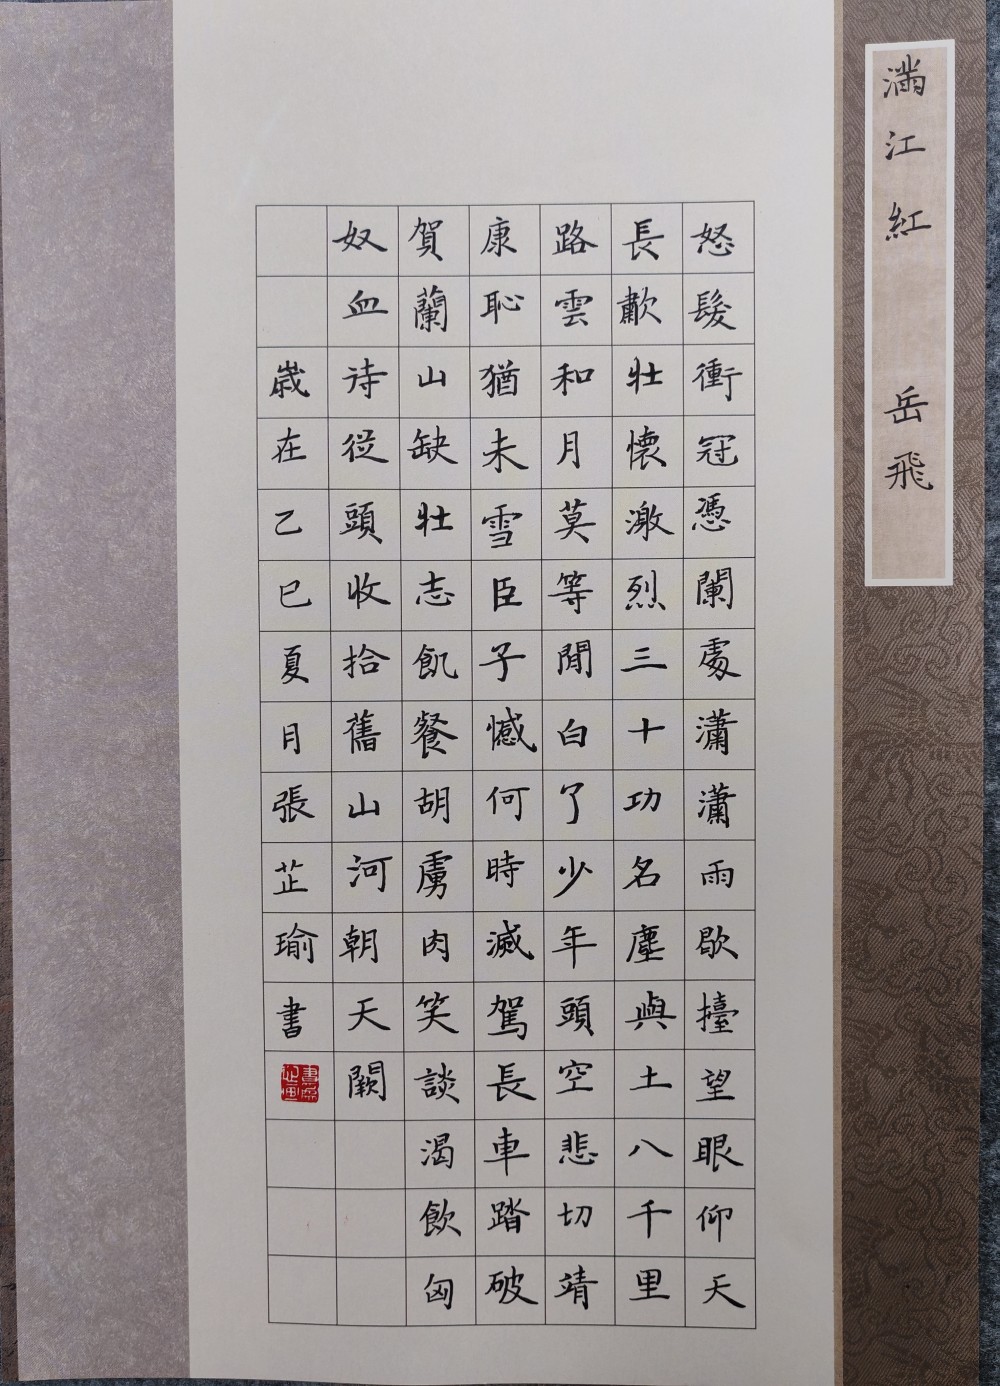 滿江紅 岳飛
怒髮衝冠憑闌處瀟瀟雨歇擡望眼仰天
長歗壯懷激烈三十功名塵與土八千里
路雲和月莫等閒白了少年頭空悲切靖
康恥猶未雪臣子憾何時滅駕長車踏破
賀蘭山缺壯志飢餐胡虜肉笑談渴飲匈
奴血待從頭收拾舊山河朝天闕
歲在乙巳夏月張芷瑜書